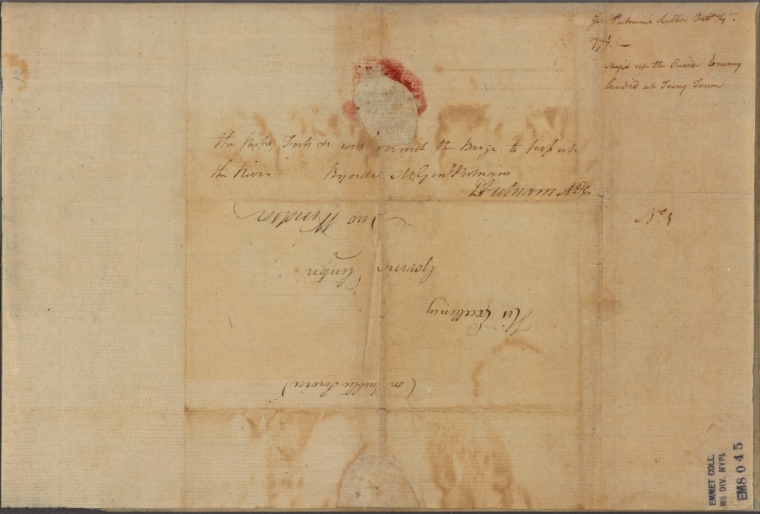 Gn. Putnam's Letter Octr. 4th.
777. —
ships up the River Enemy
landed at Tarry Town
the Ships Tents &c was round the Barge to pass up
the River By order M. Genl. Putnam
D Putnam ADC
No. 8
New Windsor
Governor Clinton
His Excellency
(on public Service)
EMMET COLL.
MS. DIV. NYPL
EM8045